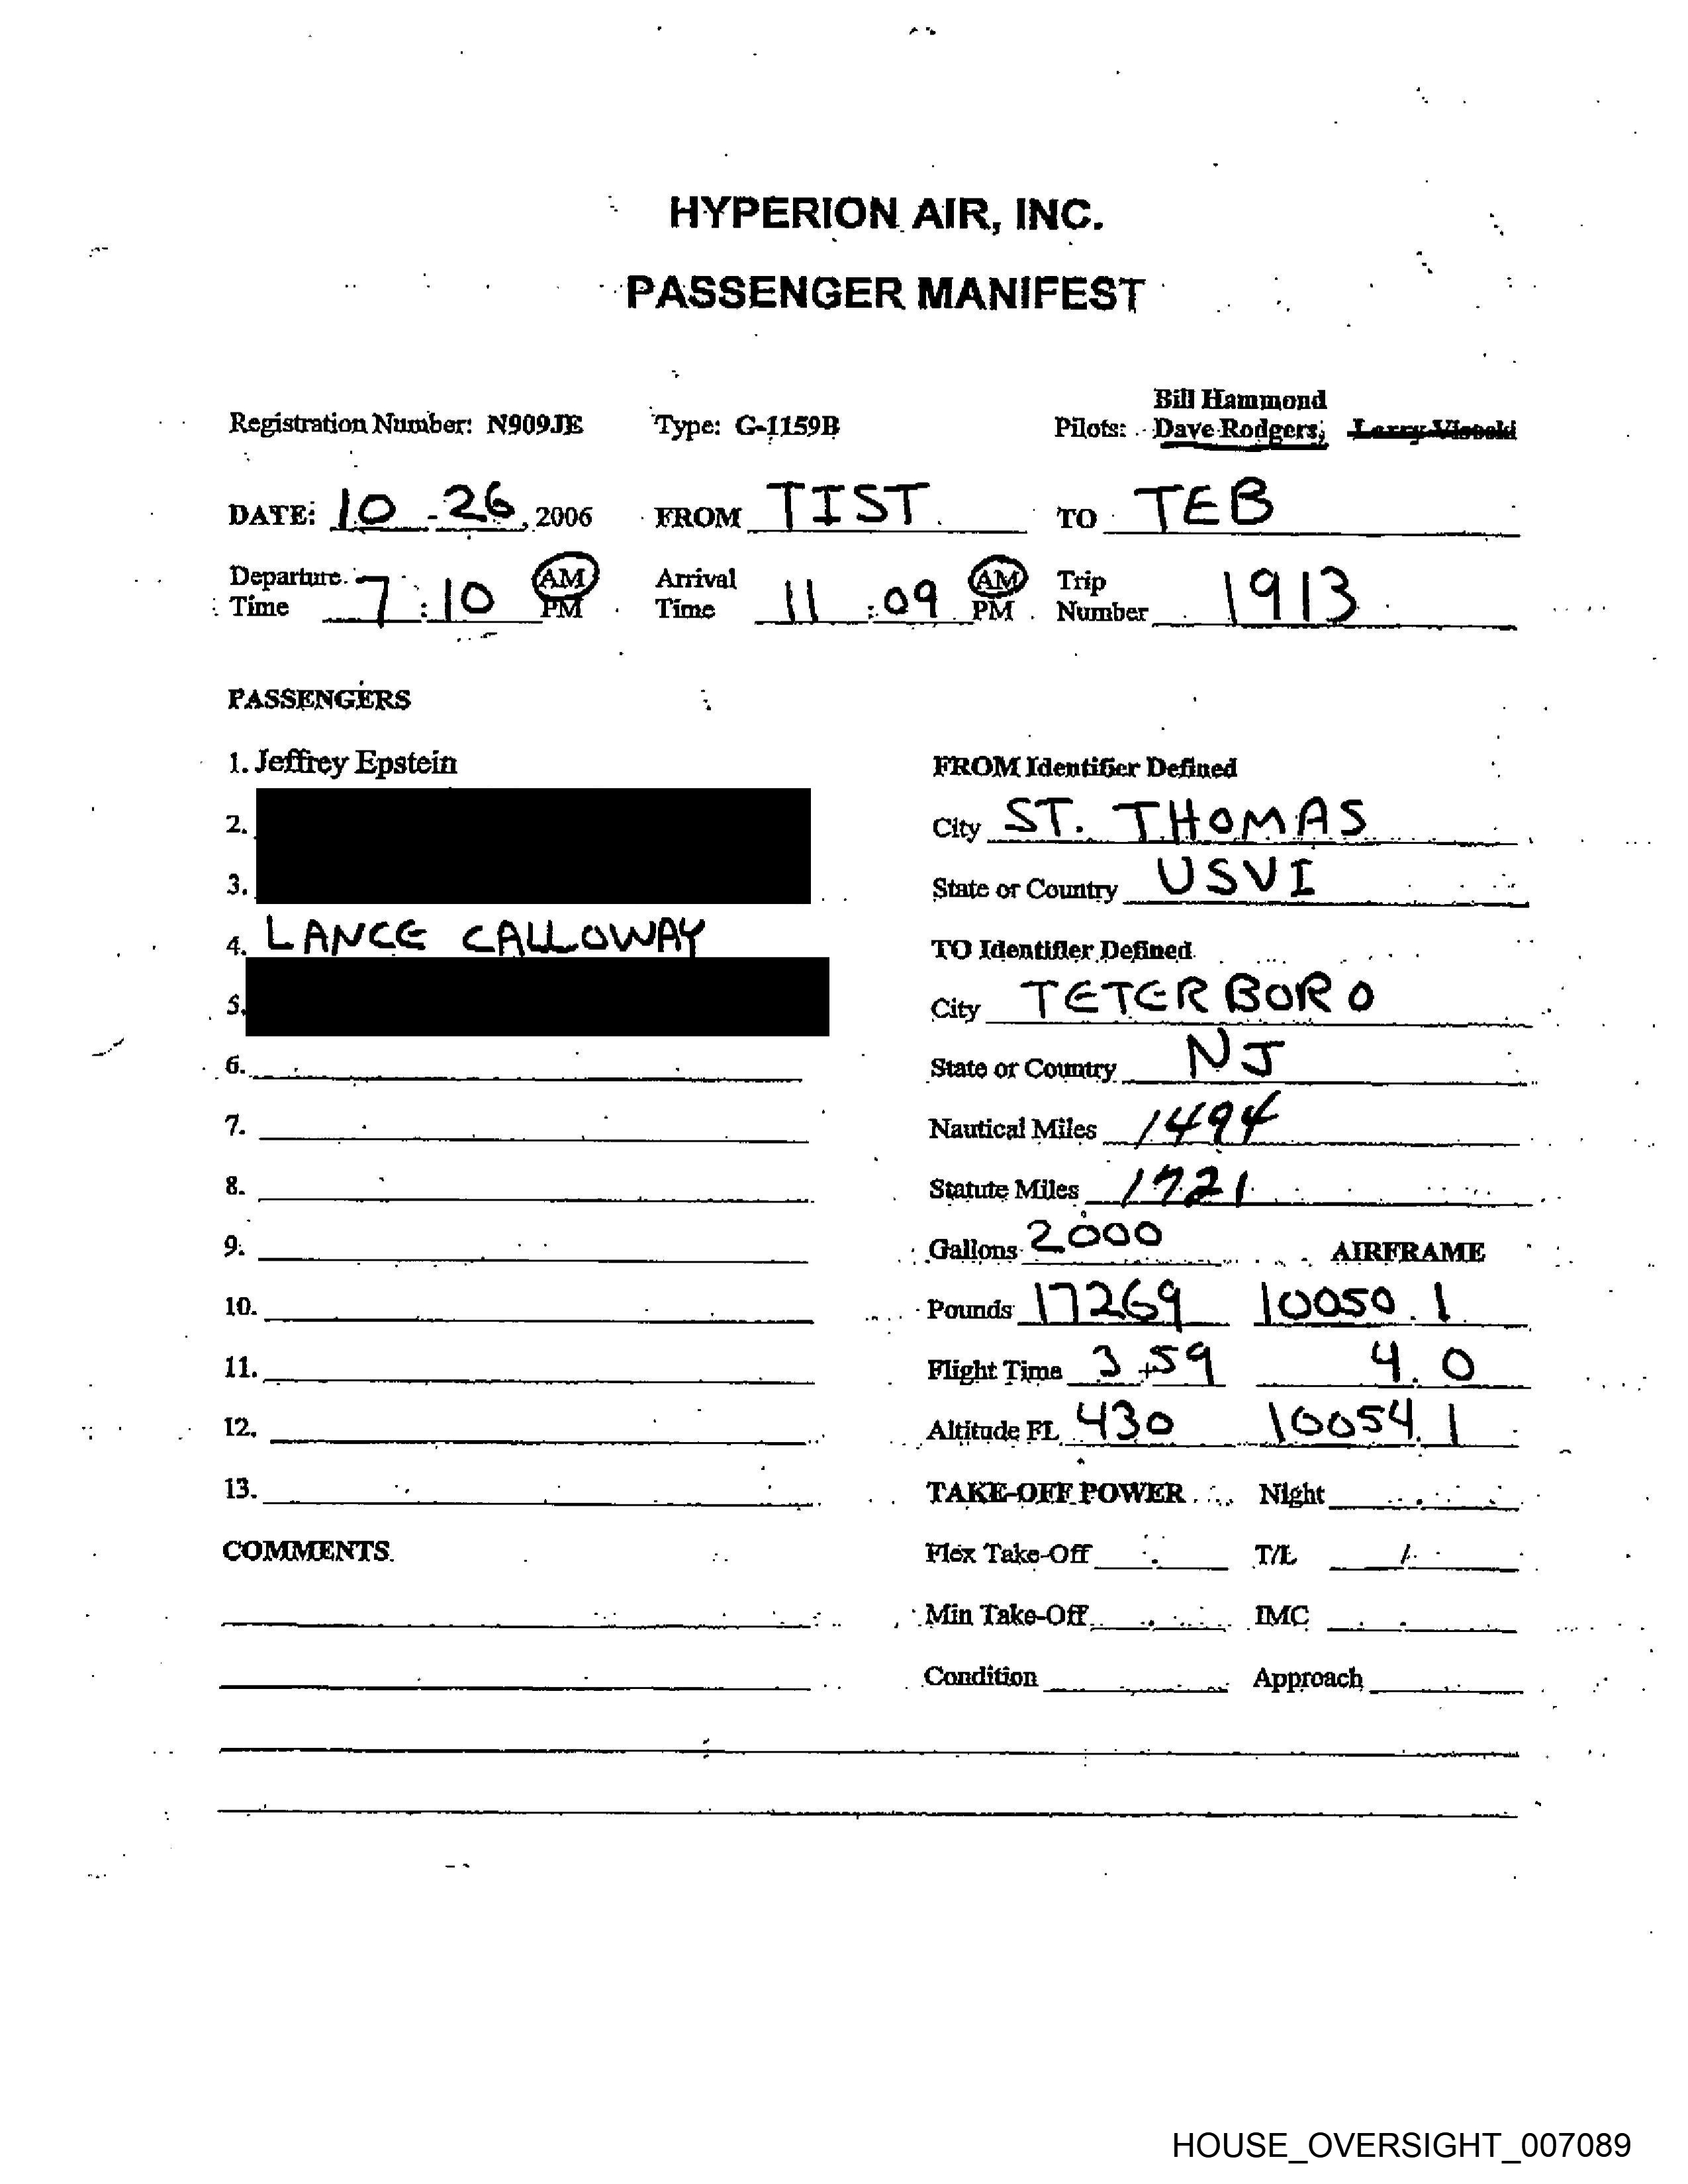 HYPERION AIR, INC.
PASSENGER MANIFEST
Bill Hammond
Registration Number: N909JE Type: G-1159B Pilots: Dave Rodgers, Larry Visoski
DATE: 10 - 26, 2006 FROM TIST TO TEB
Departure AM Arrival AM Trip
Time 7:10 PM Time 11:09 PM Number 1913
PASSENGERS
1. Jeffrey Epstein
2.
3.
4. LANCE CALLOWAY
5.
6.
7.
8.
9.
10.
11.
12.
13.
COMMENTS
FROM Identifier Defined
City ST. THOMAS
State or Country USVI
TO Identifier Defined
City TETERBORO
State or Country NJ
Nautical Miles 1494
Statute Miles 1721
Gallons 2000 AIRFRAME
Pounds 17269 10050.1
Flight Time 3+59 4.0
Altitude FL 430 10054.1
TAKE-OFF POWER Night
Flex Take-Off T/L /
Min Take-Off IMC
Condition Approach
HOUSE_OVERSIGHT_007089